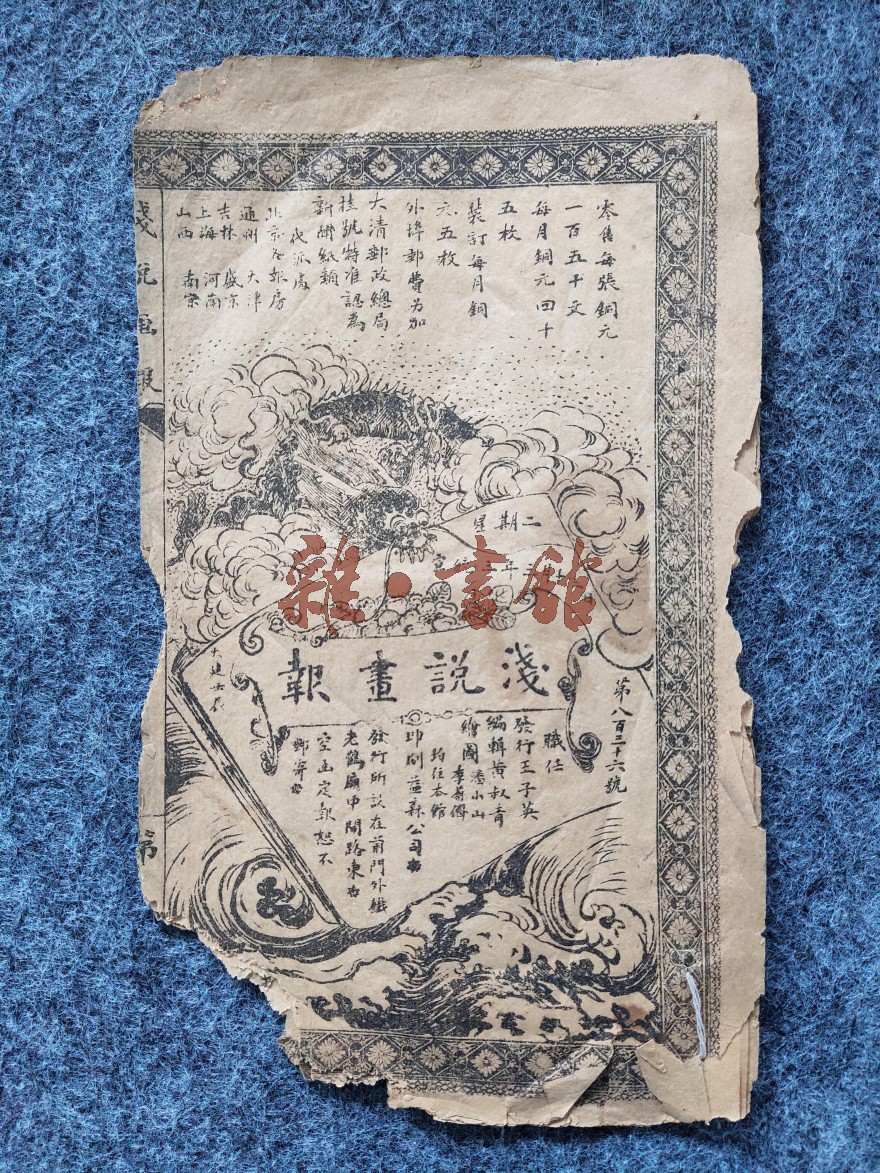 零售每張銅元
一百五十文
每月銅元四十
五枚
裝訂每月銅
六五枚
外埠郵費另加
大清郵政總局
挂號特准認為
新聞紙類
代派處
北京各報房
通州 天津
吉林 盛京
上海 河南
山西 南京
淺說畫報
星期二
宣
年
雜·書館
淺說畫報
第八百三十六號
職任
發行王子英
編輯黃叔青
繪圖潘小山
李菊儕
均住本館
印刷益森公司
發行所設在前門外鐵
老鸛廟中間路東
空函定報恕不
郵寄
第